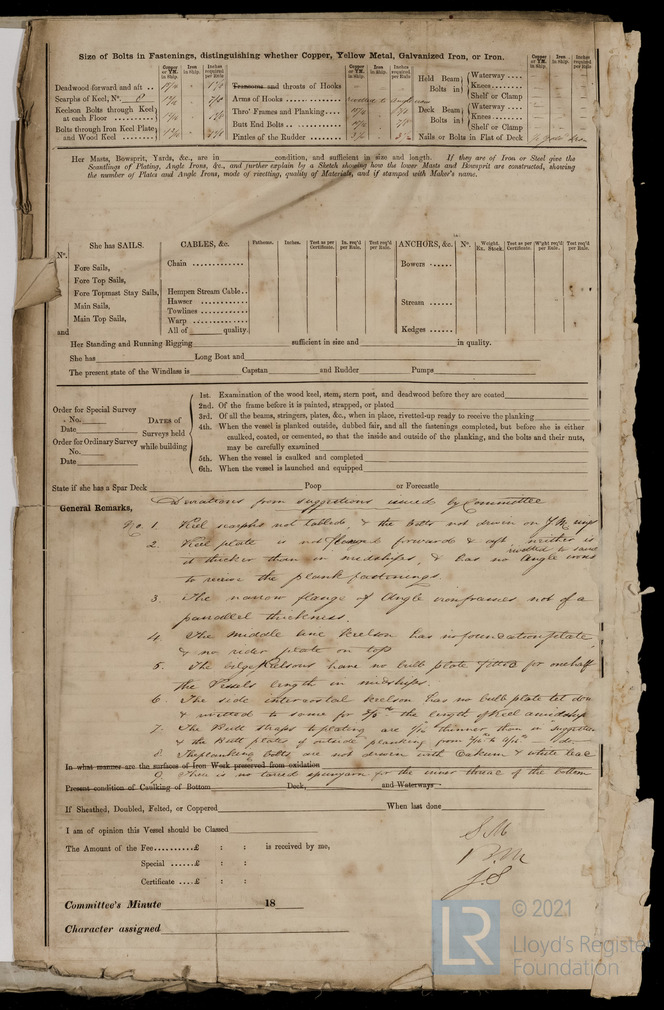 Size of Bolts in Fastenings, distinguishing whether Copper, Yellow Metal, Galvanized Iron, or Iron.
Copper or YM. in Ship. Iron in Ship. Inches required per Rule
Deadwood forward and aft
Scarphs of Keel, No.
Keelson Bolts through Keel at each Floor
Bolts through Iron Keel Plate and Wood Keel
Copper or YM. in Ship. Iron in Ship. Inches required per Rule
Transoms and throats of Hooks
Arms of Hooks
Thro' Frames and Planking
Butt End Bolts
Pintles of the Rudder
Copper or YM. in Ship. Iron in Ship. Inches required per Rule
Hold Beam Bolts in { Waterway
Knees
Shelf or Clamp
Deck Beam Bolts in { Waterway
Knees
Shelf or Clamp
Nails or Bolts in Flat of Deck
Her Masts, Bowsprit, Yards, &c., are in condition, and sufficient in size and length. If they are of Iron or Steel give the
Scantlings of Plating, Angle Irons, &c., and further explain by a Sketch showing how the lower Masts and Bowsprit are constructed, showing
the number of Plates and Angle Irons, mode of rivetting, quality of Materials, and if stamped with Maker's name.
She has SAILS.
No.
Fore Sails,
Fore Top Sails,
Fore Topmast Stay Sails,
Main Sails,
Main Top Sails,
and
CABLES, &c. Fathoms. Inches. Test as per Certificate. In. req'd per Rule. Test req'd per Rule.
Chain
Hempen Stream Cable
Hawser
Towlines
Warp
All of quality.
ANCHORS, &c. No. Weight. Ex. Stock. Test as per Certificate. W'ght req'd per Rule. Test req'd per Rule.
Bowers
Stream
Kedges
Her Standing and Running Rigging sufficient in size and in quality.
She has Long Boat and
The present state of the Windlass is Capstan and Rudder Pumps
Order for Special Survey
No.
Date
Order for Ordinary Survey
No.
Date
DATES of Surveys held while building
1st. Examination of the wood keel, stem, stern post, and deadwood before they are coated
2nd. Of the frame before it is painted, strapped, or plated
3rd. Of all the beams, stringers, plates, &c., when in place, rivetted-up ready to receive the planking
4th. When the vessel is planked outside, dubbed fair, and all the fastenings completed, but before she is either
caulked, coated, or cemented, so that the inside and outside of the planking, and the bolts and their nuts,
may be carefully examined
5th. When the vessel is caulked and completed
6th. When the vessel is launched and equipped
State if she has a Spar Deck Poop or Forecastle
General Remarks, Deviations from suggestions issued by Committee
No. 1. Keel scarphs not tabled, & the bolts not driven on YM rings
2. Keel plate is not flanged forward & aft, neither is
it thicker than in midships, & has no angle irons rivetted to same
to receive the plank fastenings.
3. The narrow flange of Angle iron frames not of a
parallel thickness.
4. The middle line keelson has no foundation plate,
& no rider plate on top
5. The bilge Keelsons have no bulb plate fitted for one half
the Vessels length in midships.
6. The side intercostal keelson has no bulb plate let down
& rivetted to same for the length of Keel amidships
7. The Butt straps to plating are thinner than in suggestion
& the Butt plates of outside planking from to
8. The planking bolts are not driven with Oakum & white lead
In what manner are the surfaces of Iron Work preserved from oxidation
9. There is no tarred spunyarn for the inner thread of the bottom
Present condition of Caulking of Bottom Deck, and Waterways
If Sheathed, Doubled, Felted, or Coppered When last done
I am of opinion this Vessel should be Classed
The Amount of the Fee..........£ : : is received by me,
Special ......£ : :
Certificate ....£ : :
S.M
B.M
J.S
Committee's Minute 18
Character assigned
LR © 2021
Lloyd's Register
Foundation